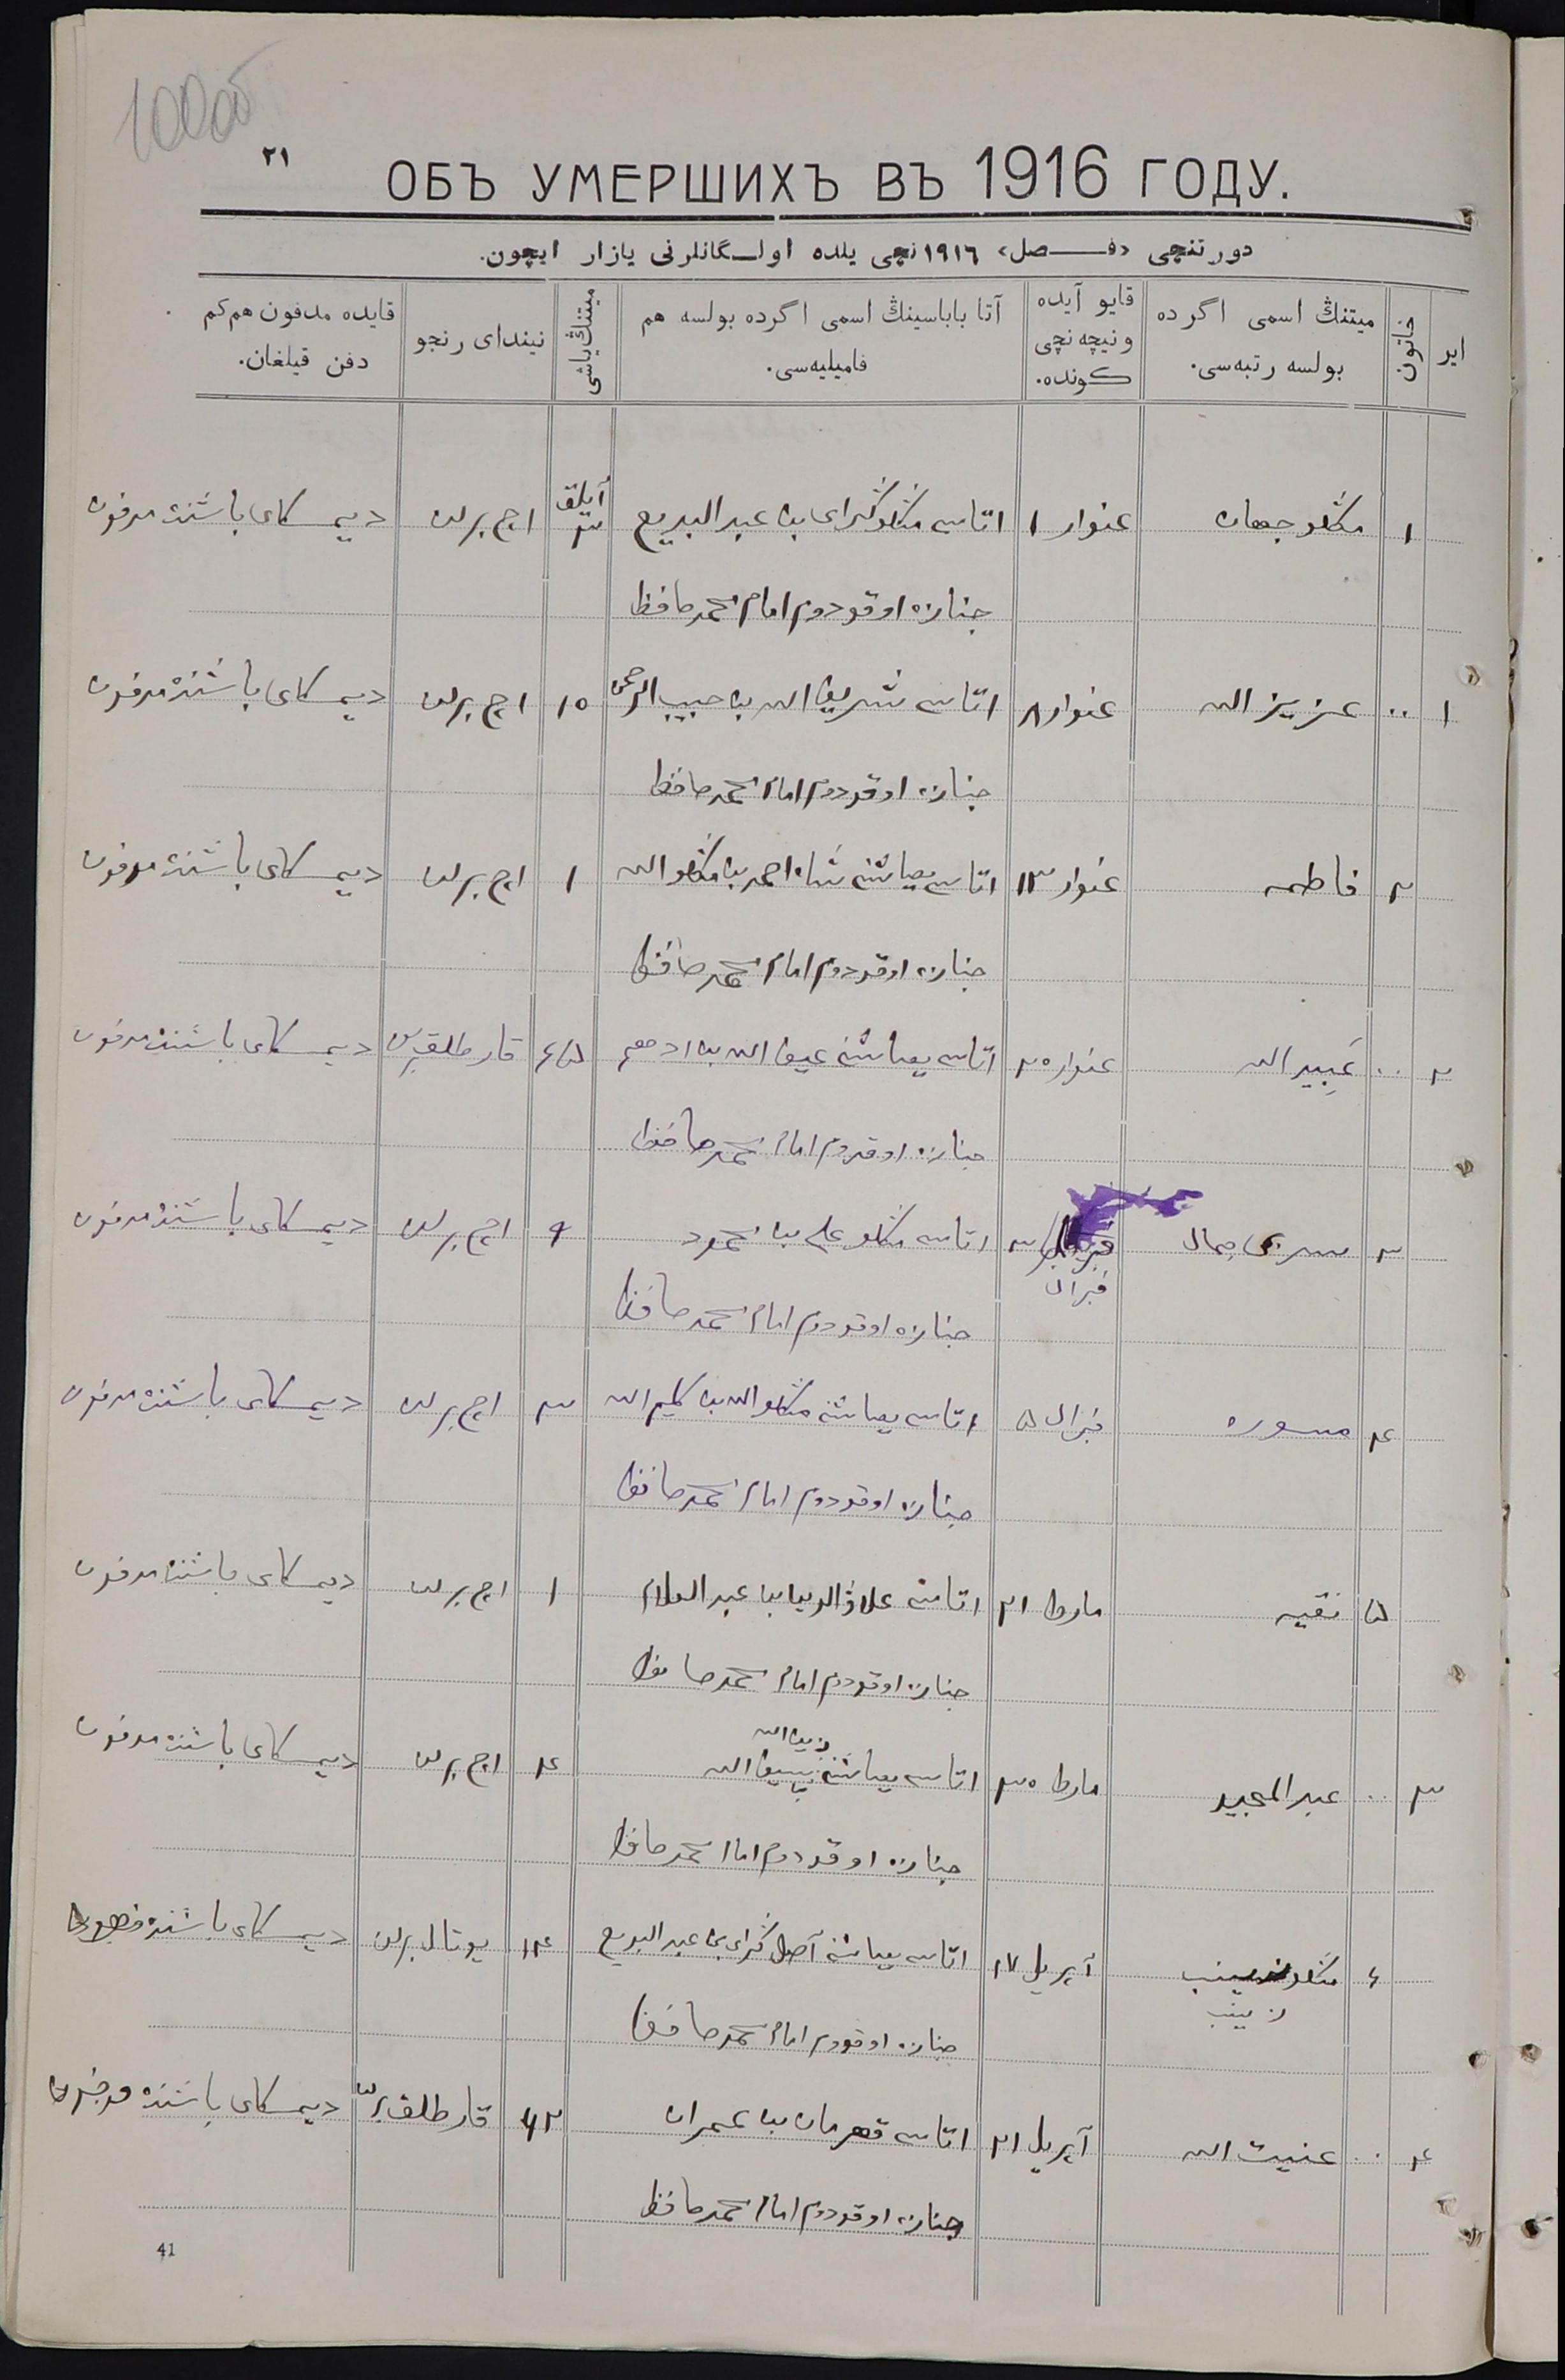 1000
٢١
ОБЪ УМЕРШИХЪ ВЪ 1916 ГОДУ.
دورتنچی «فـــصل» ١٩١٦نچی یلده اولـگانلرنی یازار ایچون.
ایر
خاتون
میتنڭ اسمی اگرده بولسه رتبه‌سی.
قایو آیده ونیچه نچی كونده.
آتا باباسینڭ اسمی اگرده بولسه هم فامیلیه‌سی.
میتنڭ یاشی
نیندای رنجو
قایده مدفون هم كم دفن قیلغان.
١ منكلو جهان غنوار ١ اتاسی منكلوگرای بن عبد البدیع ٣ آیلق اچ برلن دیمسكای باشنده مدفون
جنازه اوقودوم امام محمد حافظ
١ ,, عزیز الله غنوار ٨ اتاسی شریف الله بن حبیب الرحمن ١٥ اچ برلن دیمسكای باشنده مدفون
جنازه اوقودوم امام محمد حافظ
٢ فاطمه غنوار ١٣ اتاسی شاه احمد بن منكلو الله ١ اچ برلن دیمسكای باشنده مدفون
جنازه اوقودوم امام محمد حافظ
٢ ,, عبید الله غنوار ٢٥ اتاسی بن ادهم ٦٥ قارطلق برلن دیمسكای باشنده مدفون
جنازه اوقودوم امام محمد حافظ
٣ جمال ٣ اتاسی منكلو علی بن محمود ٩ اچ برلن دیمسكای باشنده مدفون
فبرال
جنازه اوقودوم امام محمد حافظ
٤ فبرال ٥ اتاسی منكلو الله بن كلیم الله ٣ اچ برلن دیمسكای باشنده مدفون
جنازه اوقودوم امام محمد حافظ
٥ نقیه مارط ٢١ اتاسی علاؤ الدین بن عبد العلام ١ اچ برلن دیمسكای باشنده مدفون
جنازه اوقودوم امام محمد حافظ
٣ ,, عبد المجید مارط ٣٠ اتاسی ٤ اچ برلن دیمسكای باشنده مدفون
جنازه اوقودوم امام محمد حافظ
٦ منكلو زینب آپریل ١٧ اتاسی آصل گرای بن عبد البدیع ١٤ یوتال برلن دیمسكای باشنده
زینب
جنازه اوقودوم امام محمد حافظ
٤ ,, عنیت الله آپریل ٢١ اتاسی قهرمان بن عمران ٦٢ قارطلق برلن دیمسكای باشنده مدفون
جنازه اوقودوم امام محمد حافظ
41